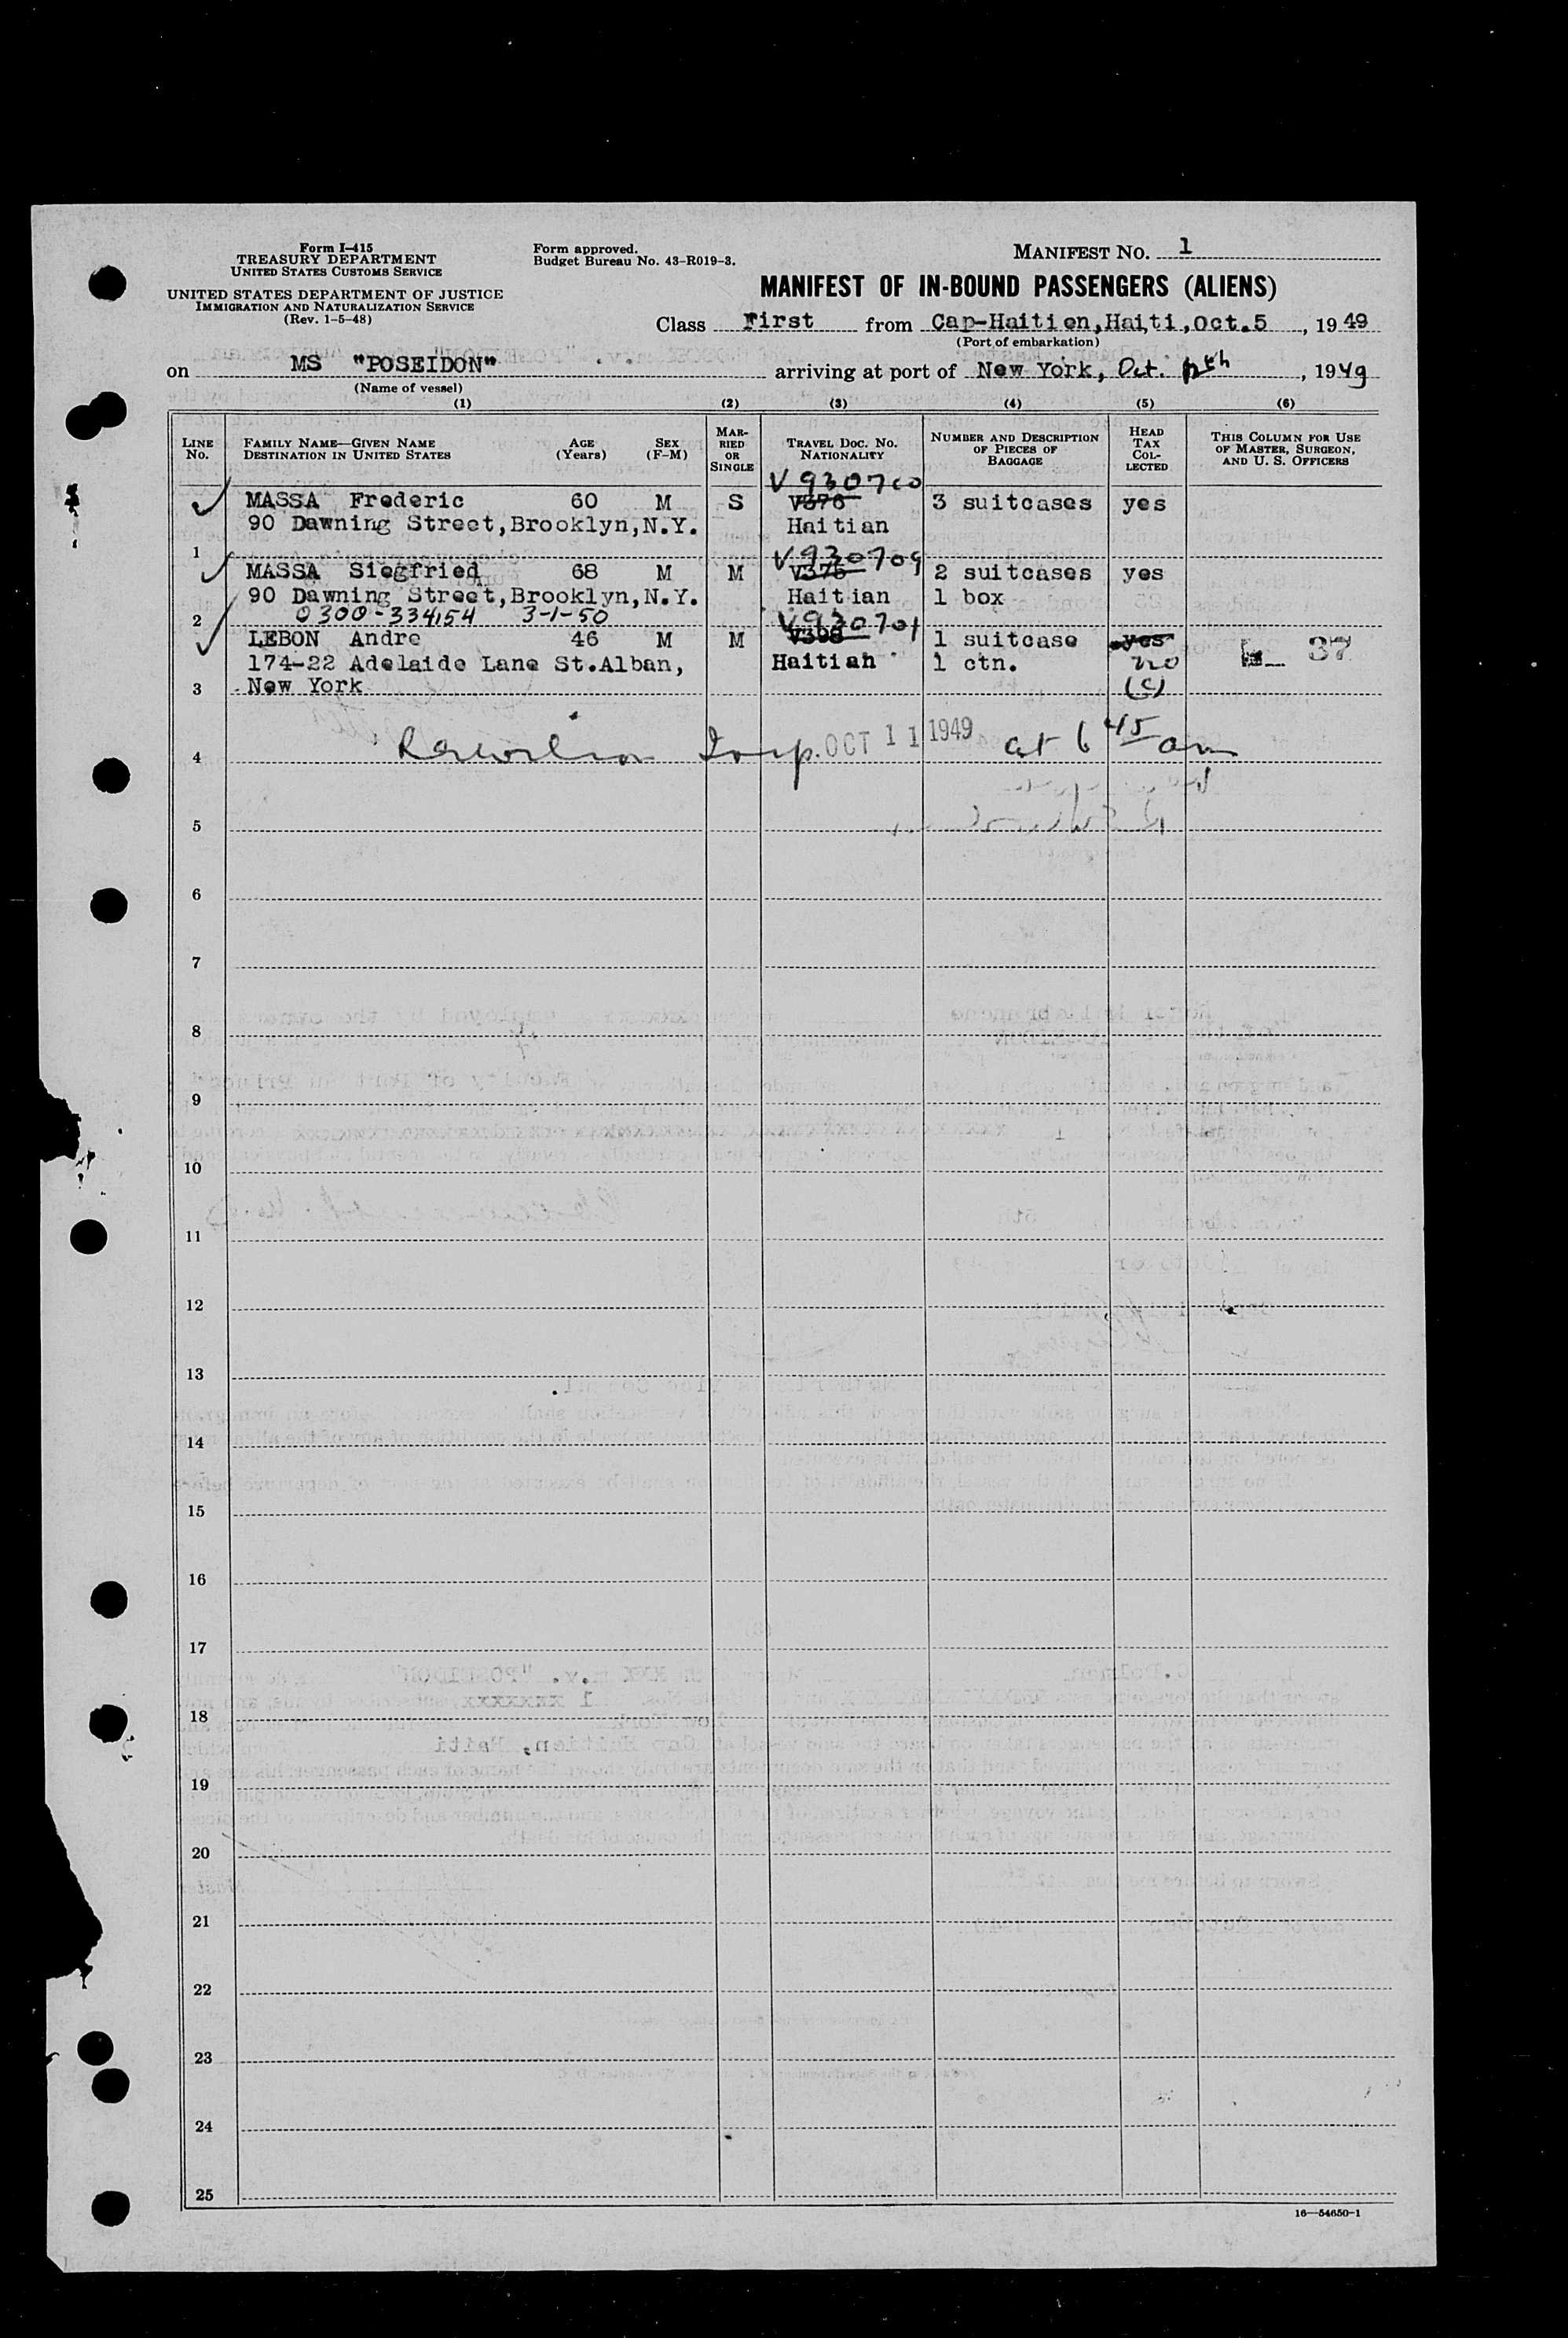 Form I-415
TREASURY DEPARTMENT
UNITED STATES CUSTOMS SERVICE
UNITED STATES DEPARTMENT OF JUSTICE
IMMIGRATION AND NATURALIZATION SERVICE
(Rev. 1-5-48)
Form approved.
Budget Bureau No. 43-R019-3.
MANIFEST NO. 1
MANIFEST OF IN-BOUND PASSENGERS (ALIENS)
Class First from Cap-Haitien, Haiti, Oct. 5, 1949
(Port of embarkation)
on MS "POSEIDON" arriving at port of New York, Oct. 1949
(Name of vessel)
(1) (2) (3) (4) (5) (6)
LINE No. FAMILY NAME—GIVEN NAME DESTINATION IN UNITED STATES AGE (Years) SEX (F-M) MARRIED OR SINGLE TRAVEL DOC. NO. NATIONALITY NUMBER AND DESCRIPTION OF PIECES OF BAGGAGE HEAD TAX COLLECTED THIS COLUMN FOR USE OF MASTER, SURGEON, AND U. S. OFFICERS
V930700
MASSA Frederic 60 M S V376 3 suitcases yes
90 Dawning Street, Brooklyn, N.Y. Haitian
1
V930709
MASSA Siegfried 68 M M V375 2 suitcases yes
90 Dawning Street, Brooklyn, N.Y. Haitian 1 box
2 0300-334154 3-1-50
V930701
LEBON Andre 46 M M V398 1 suitcase yes
174-22 Adelaide Lane St.Alban, Haitian 1 ctn. no 37
3 New York (c)
4 Insp. OCT 11 1949 at 6 45 am
5
6
7
8
9
10
11
12
13
14
15
16
17
18
19
20
21
22
23
24
25
16—54650-1